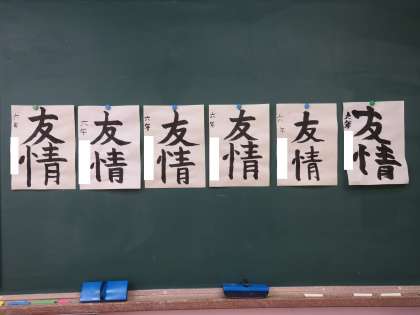 六年
友情
六年
友情
六年
友情
六年
友情
六年
友情
六年
友情